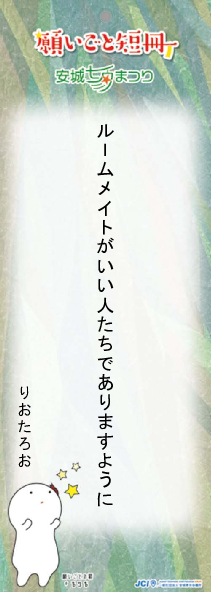 願いごと短冊
安城七夕まつり
ルームメイトがいい人たちでありますように
りおたろお
JCI